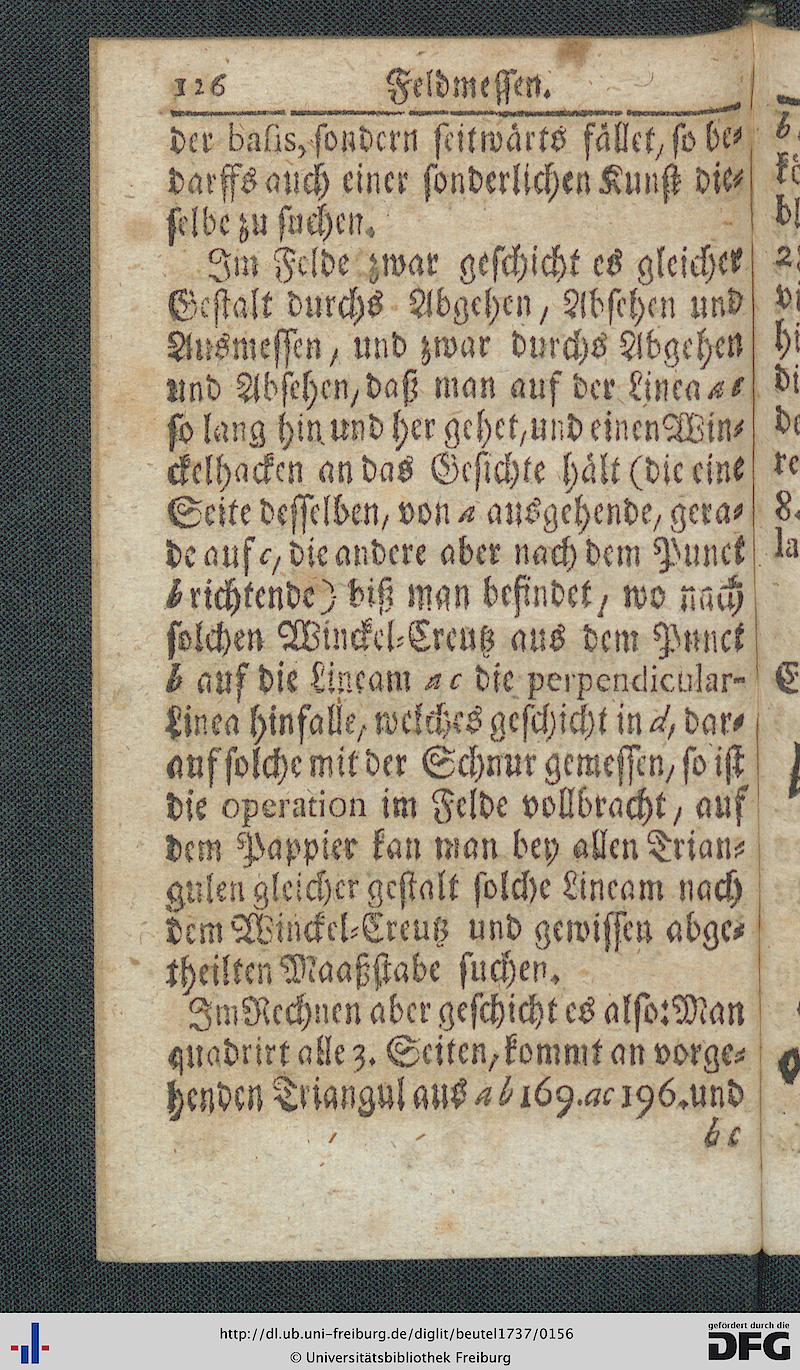 126 Feldmessen.
der basis, sondern seitwärts fället, so be-
darffs auch einer sonderlichen Kunst die-
selbe zu suchen.
Im Felde zwar geschicht es gleicher
Gestalt durchs Abgehen, Absehen und
Ausmessen, und zwar durchs Abgehen
und Absehen, daß man auf der Linea a c
so lang hin und her gehet, und einen Win-
ckelhacken an das Gesichte hält (die eine
Seite desselben, von a ausgehende, gera-
de auf c, die andere aber nach dem Punct
b richtende) biß man befindet, wo nach
solchen Winckel-Creutz aus dem Punct
b auf die Lineam a c die perpendicular-
Linea hinfalle, welches geschicht in d, dar-
auf solche mit der Schnur gemessen, so ist
die operation im Felde vollbracht, auf
dem Pappier kan man bey allen Trian-
gulen gleicher gestalt solche Lineam nach
dem Winckel-Creutz und gewissen abge-
theilten Maaßstabe suchen.
Im Rechnen aber geschicht es also: Man
quadrirt alle 3. Seiten, kommt an vorge-
henden Triangul aus a b 169. ac 196. und
b c
http://dl.ub.uni-freiburg.de/diglit/beutel1737/0156
© Universitätsbibliothek Freiburg
gefördert durch die
DFG